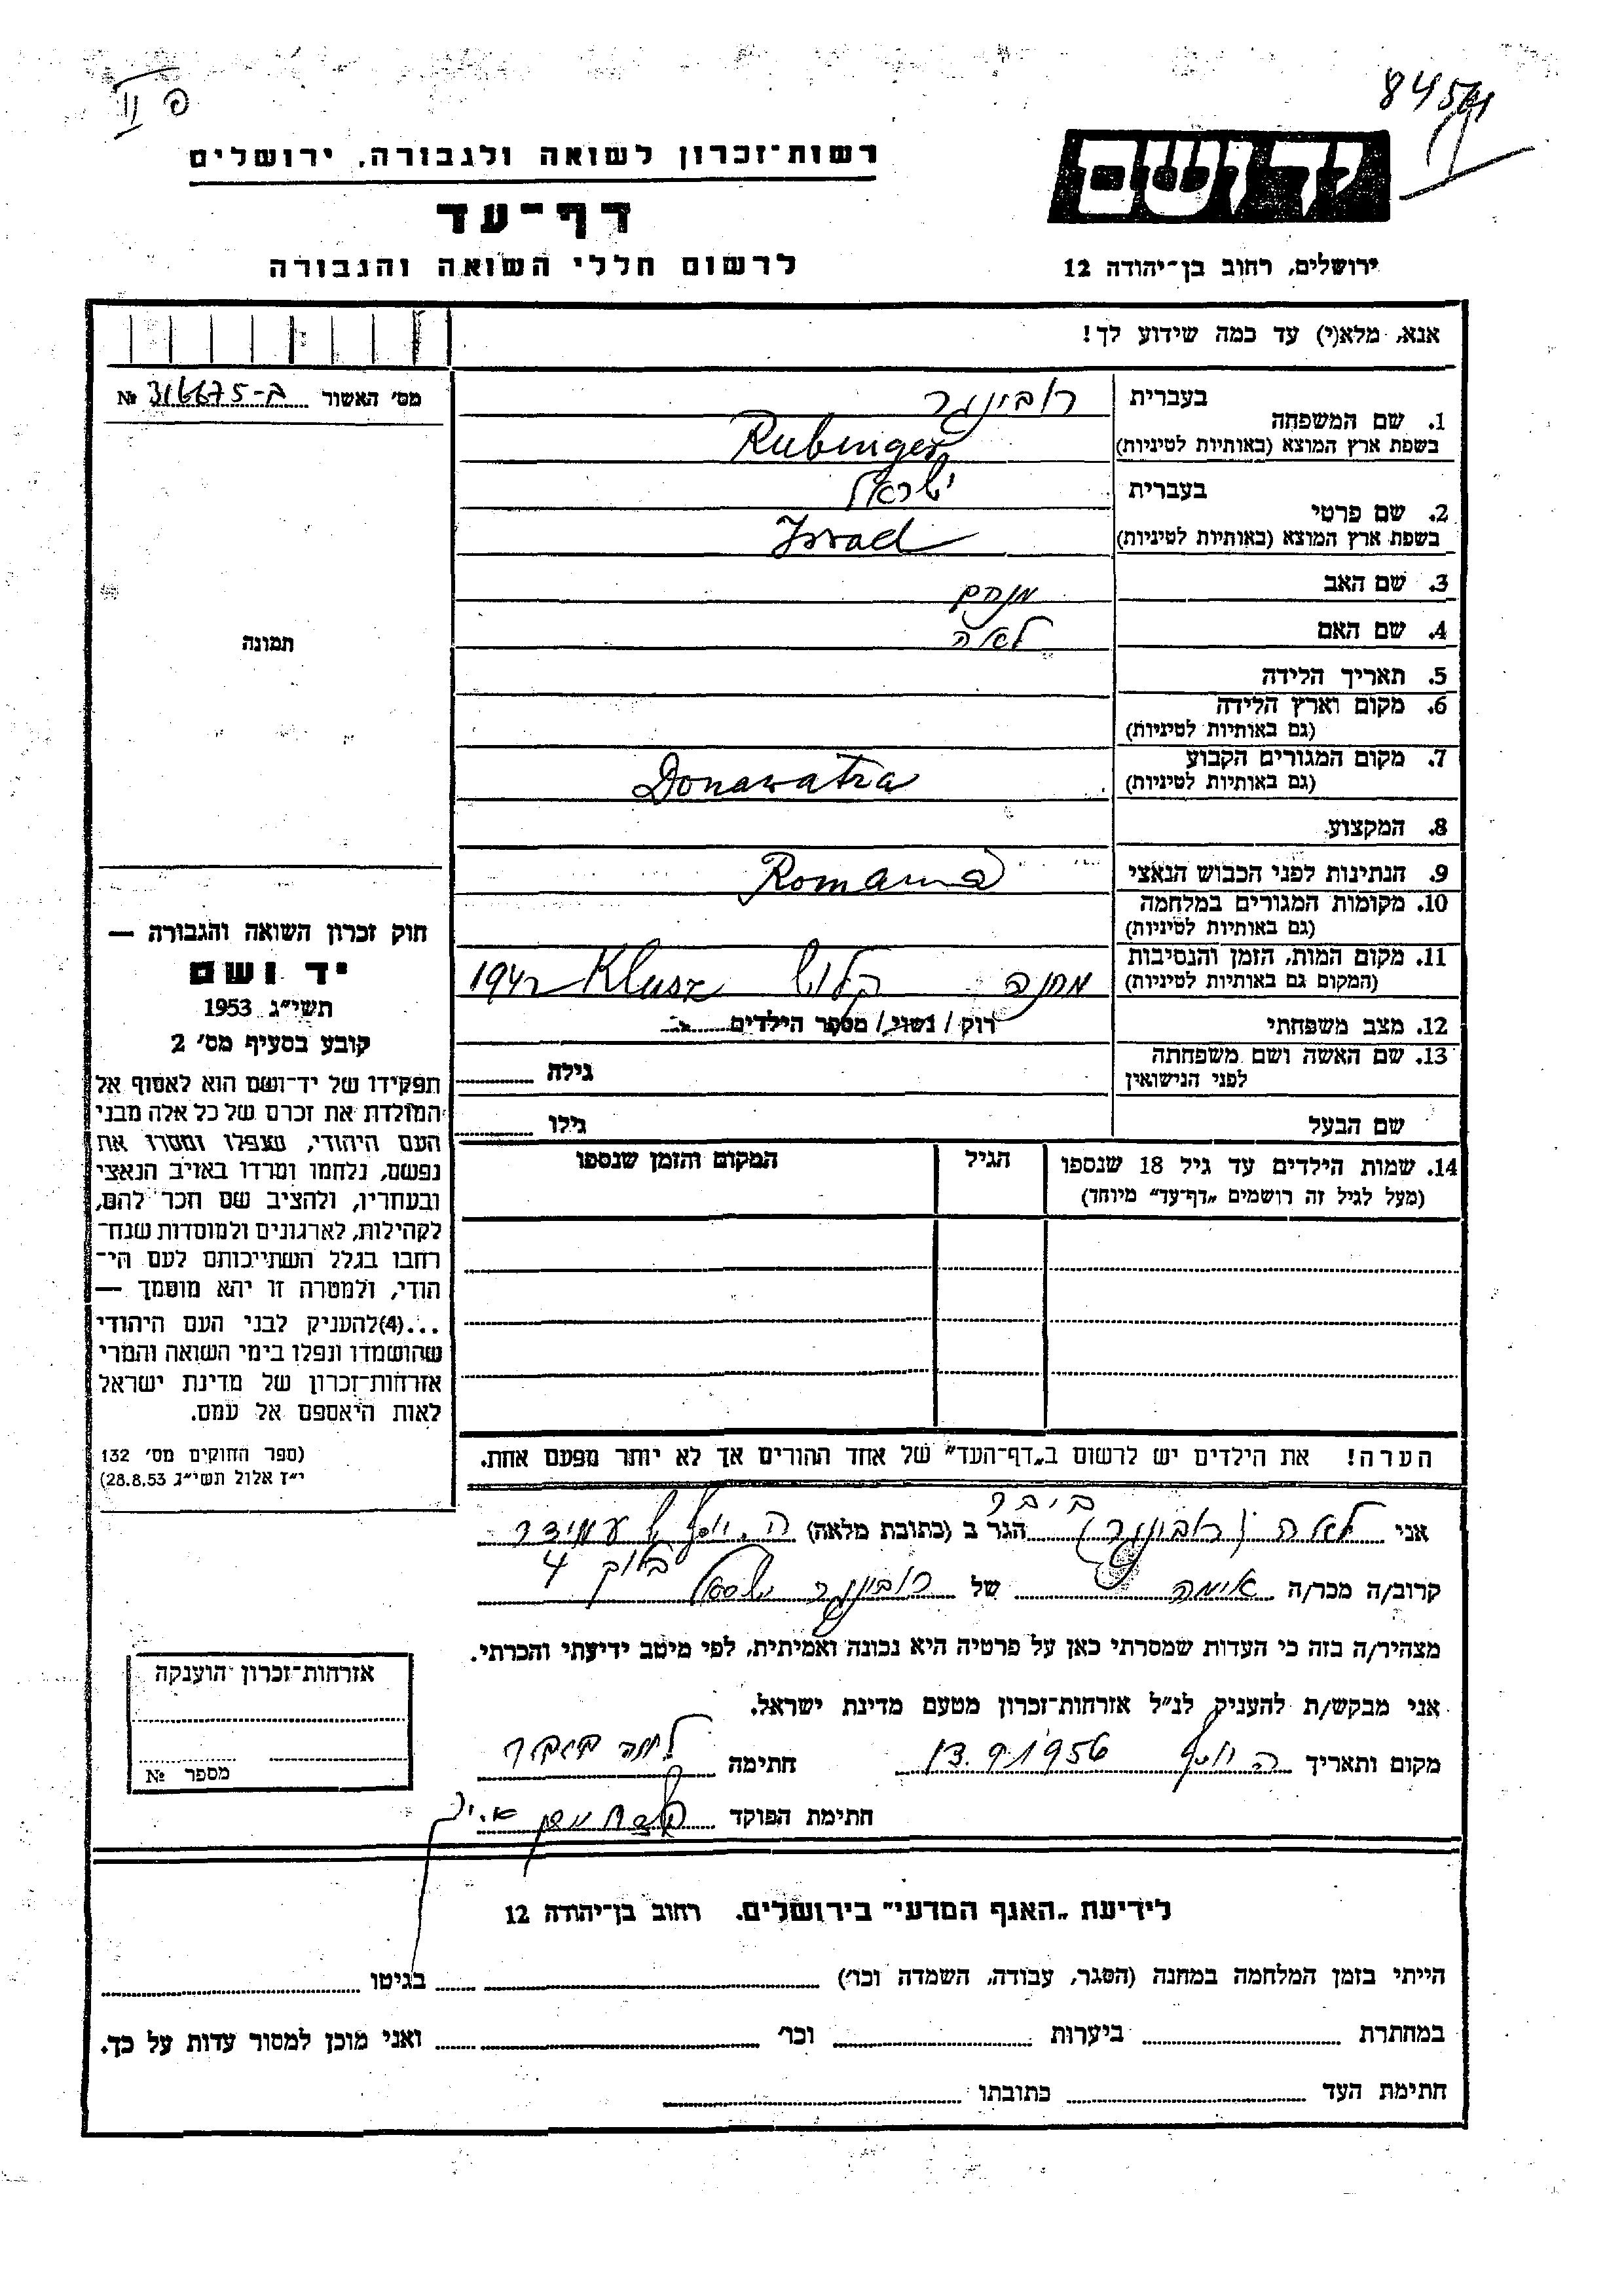 פ II
845/11
רשות־זכרון לשואה ולגבורה, ירושלים
דף־עד
לרשום חללי השואה והגבורה
יד ושם
ירושלים, רחוב בן־יהודה 12
אנא, מלא(י) עד כמה שידוע לך!
מס׳ האשור ב-316675 №
תמונה
1. שם המשפחה בעברית רובינגר
בשפת ארץ המוצא (באותיות לטיניות) Rubinger
2. שם פרטי בעברית ישראל
בשפת ארץ המוצא (באותיות לטיניות) Israel
3. שם האב מנחם
4. שם האם לאה
5. תאריך הלידה
6. מקום וארץ הלידה
(גם באותיות לטיניות)
7. מקום המגורים הקבוע Donawatra
(גם באותיות לטיניות)
8. המקצוע
9. הנתינות לפני הכבוש הנאצי Romania
10. מקומות המגורים במלחמה
(גם באותיות לטיניות)
11. מקום המות, הזמן והנסיבות מחנה קלוז Klusz 1942
(המקום גם באותיות לטיניות)
12. מצב משפחתי רוק / נשוי / מספר הילדים
13. שם האשה ושם משפחתה גילה
לפני הנישואין
שם הבעל גילו
14. שמות הילדים עד גיל 18 שנספו הגיל המקום והזמן שנספו
(מעל לגיל זה רושמים „דף־עד” מיוחד)
הערה! את הילדים יש לרשום ב„דף־העד” של אחד ההורים אך לא יותר מפעם אחת.
חוק זכרון השואה והגבורה —
יד ושם
תשי״ג 1953
קובע בסעיף מס׳ 2
תפקידו של יד־ושם הוא לאסוף אל
המולדת את זכרם של כל אלה מבני
העם היהודי, שנפלו ומסרו את
נפשם, נלחמו ומרדו באויב הנאצי
ובעוזריו, ולהציב שם וזכר להם,
לקהילות, לארגונים ולמוסדות שנח־
רבו בגלל השתייכותם לעם הי־
הודי, ולמטרה זו יהא מוסמך —
...(4)להעניק לבני העם היהודי
שהושמדו ונפלו בימי השואה והמרי
אזרחות־זכרון של מדינת ישראל
לאות היאספם אל עמם.
(ספר החוקים מס׳ 132
י״ז אלול תשי״ג 28.8.53)
אני לאה (רובינגר) ביבר הגר ב (כתובת מלאה) עמידר
בלוק 4
קרוב/ה מכר/ה אימה של רובינגר ישראל
מצהיר/ה בזה כי העדות שמסרתי כאן על פרטיה היא נכונה ואמיתית, לפי מיטב ידיעתי והכרתי.
אני מבקש/ת להעניק לנ״ל אזרחות־זכרון מטעם מדינת ישראל.
מקום ותאריך 13.9.1956 חתימה לאה ביבר
חתימת הפוקד
אזרחות־זכרון הוענקה
מספר №
לידיעת „האגף המדעי” בירושלים. רחוב בן־יהודה 12
הייתי בזמן המלחמה במחנה (הסגר, עבודה, השמדה וכו׳) בגיטו
במחתרת ביערות וכו׳ ואני מוכן למסור עדות על כך.
חתימת העד כתובתו